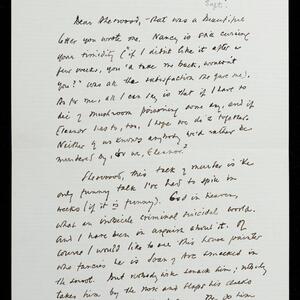 Sept?
Dear Sherwood, - That was a beautiful
letter you wrote me. Nancy is
your timidity ("if I didn't like it after a
few weeks, you'd take me back, wouldn't
you?" was all the satisfaction she gave me).
As for me, all I can say is that if I have to
die of mushroom poisoning some day, and if
Eleanor has to, too, I hope we do it together.
Neither of us knows anybody we'd rather be
murdered by, or we, Eleanor?
Sherwood, this talk of murder is the
only funny talk I've had to spill in
weeks (if it is funny). God in heaven,
what an imbecile criminal suicidal world.
And I have been in anguish about it. Of
course I would like to see this house painter
who fancies he is Joan of Arc smacked in
the snoot. But nobody will smack him; nobody
takes him by the nose and slaps his cheeks